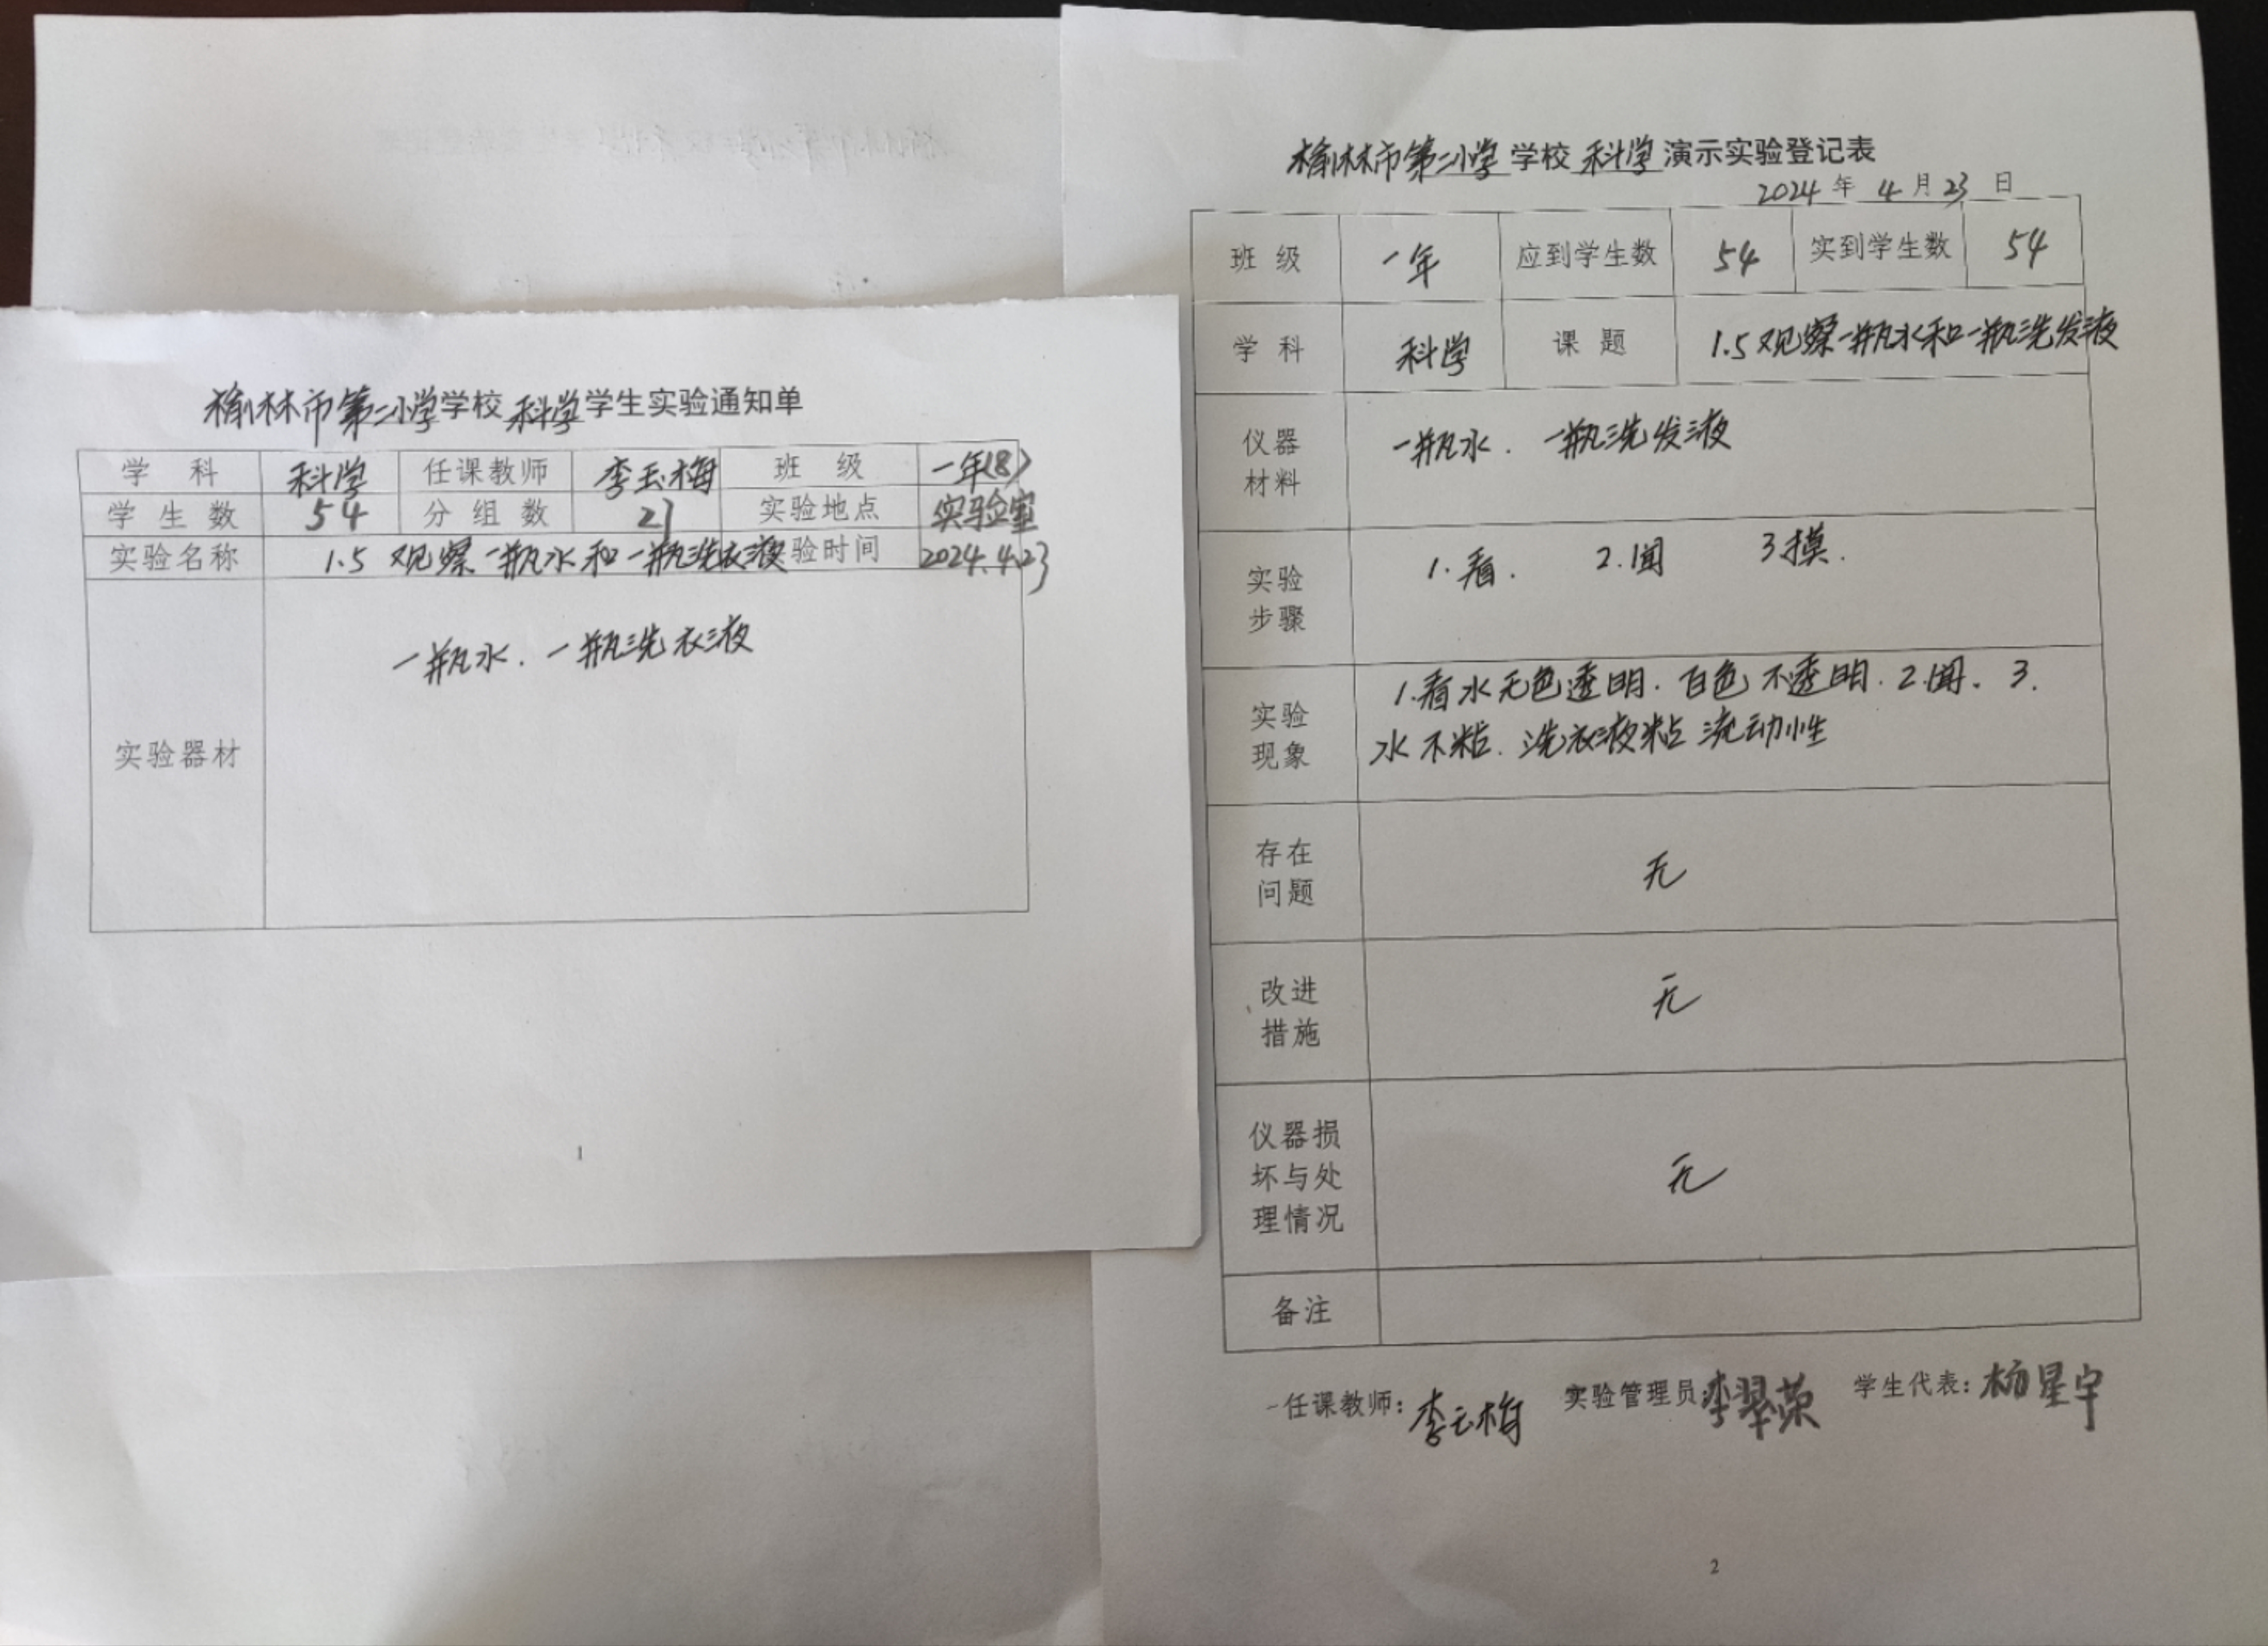 榆林市第二小学学校 科学学生实验通知单
学 科 科学 任课教师 李玉梅 班 级 一年(8)
学 生 数 54 分 组 数 27 实验地点 实验室
实验名称 1.5 观察一瓶水和一瓶洗衣液 验时间 2024.4.23
一瓶水. 一瓶洗衣液
实验器材
1
榆林市第二小学学校 科学演示实验登记表
2024年 4月23日
班 级 一年 应到学生数 54 实到学生数 54
学 科 科学 课 题 1.5观察一瓶水和一瓶洗发液
仪器
材料
一瓶水. 一瓶洗发液
实验
步骤
1.看. 2.闻 3摸.
实验
现象
1.看水无色透明. 白色不透明. 2.闻. 3.
水不粘. 洗衣液粘 流动性
存在
问题
无
改进
措施
无
仪器损
坏与处
理情况
无
备注
任课教师: 李玉梅 实验管理员: 李翠荣 学生代表: 杨星宇
2